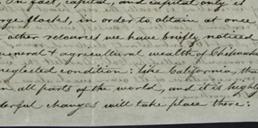 In fact, capital, and capital only is
large flasks, in order to obtain at once
other resources we have briefly noticed
mineral & agricultural wealth of Chihuahua
neglected condition: like California, the
in all parts of the world, and it is highly
wonderful changes will take place there: